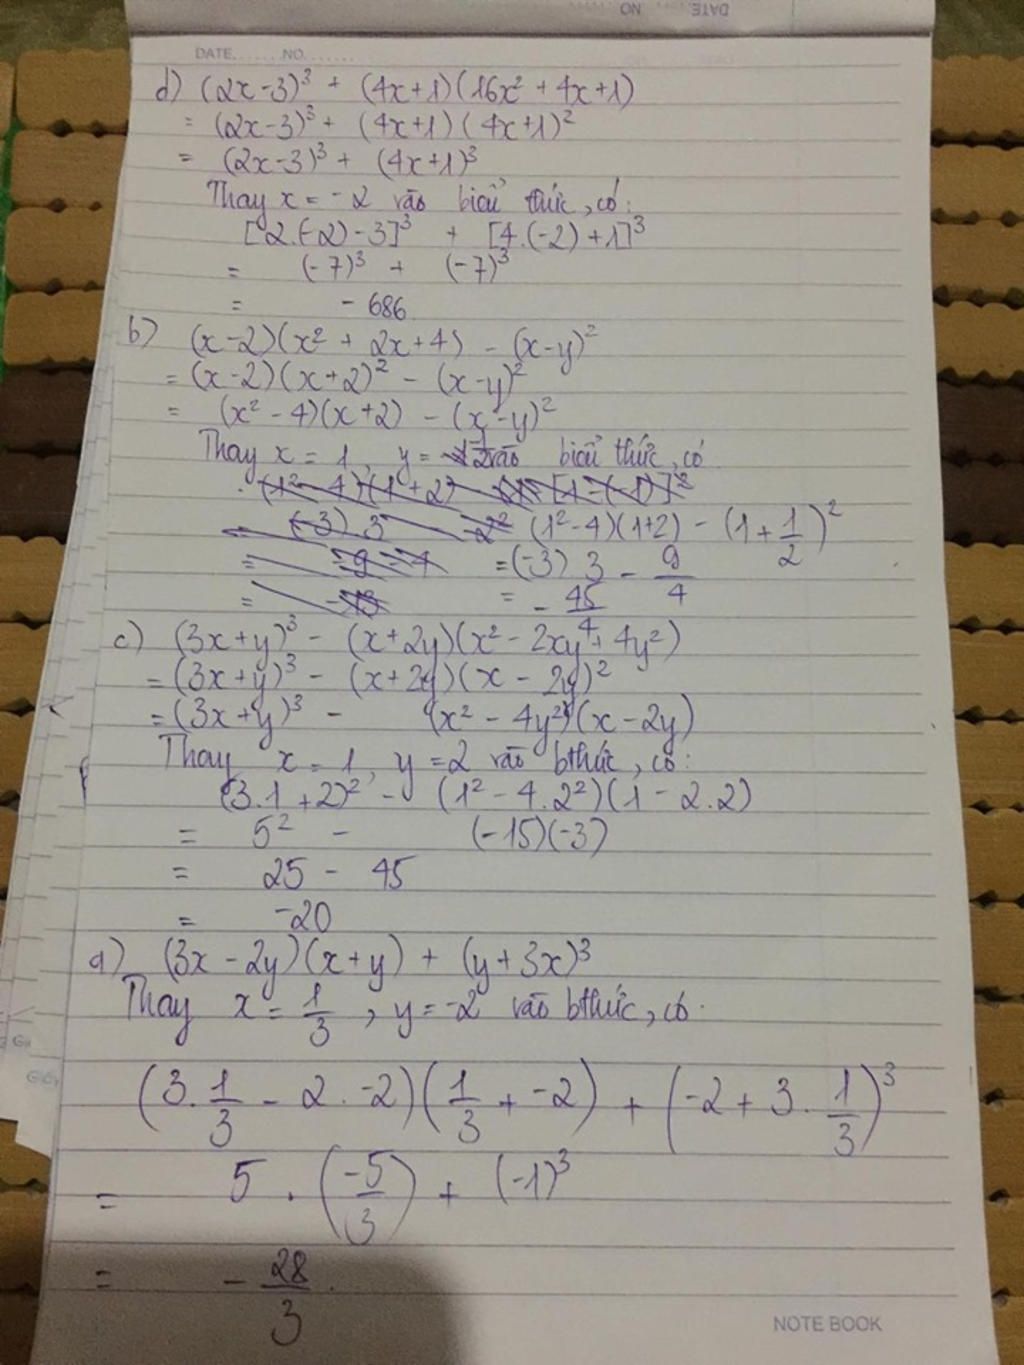 DATE.......NO.......
d) (2x-3)³ + (4x+1)(16x² + 4x+1)
= (2x-3)³ + (4x+1)(4x+1)²
= (2x-3)³ + (4x+1)³
Thay x = -2 vào biểu thức, có:
[2.(-2)-3]³ + [4.(-2)+1]³
= (-7)³ + (-7)³
= -686
b) (x-2)(x² + 2x+4) - (x-y)²
= (x-2)(x+2)² - (x-y)²
= (x²-4)(x+2) - (x-y)²
Thay x = 1, y = vào biểu thức, có
(1²-4)(1+2) - (1+1/2)²
= (-3) 3 - 9/4
= -45/4
c) (3x+y)³ - (x+2y)(x² - 2xy + 4y²)
= (3x+y)³ - (x+2y)(x - 2y)²
= (3x+y)³ - (x² - 4y²)(x-2y)
Thay x = 1, y = 2 vào bthức, có:
(3.1+2)² - (1² - 4.2²)(1-2.2)
= 5² - (-15)(-3)
= 25 - 45
= -20
a) (3x - 2y)(x+y) + (y+3x)³
Thay x = 1/3, y = -2 vào bthức, có.
(3.1/3 - 2.-2)(1/3 + -2) + (-2 + 3.1/3)³
= 5.(-5/3) + (-1)³
= -28/3
NOTE BOOK